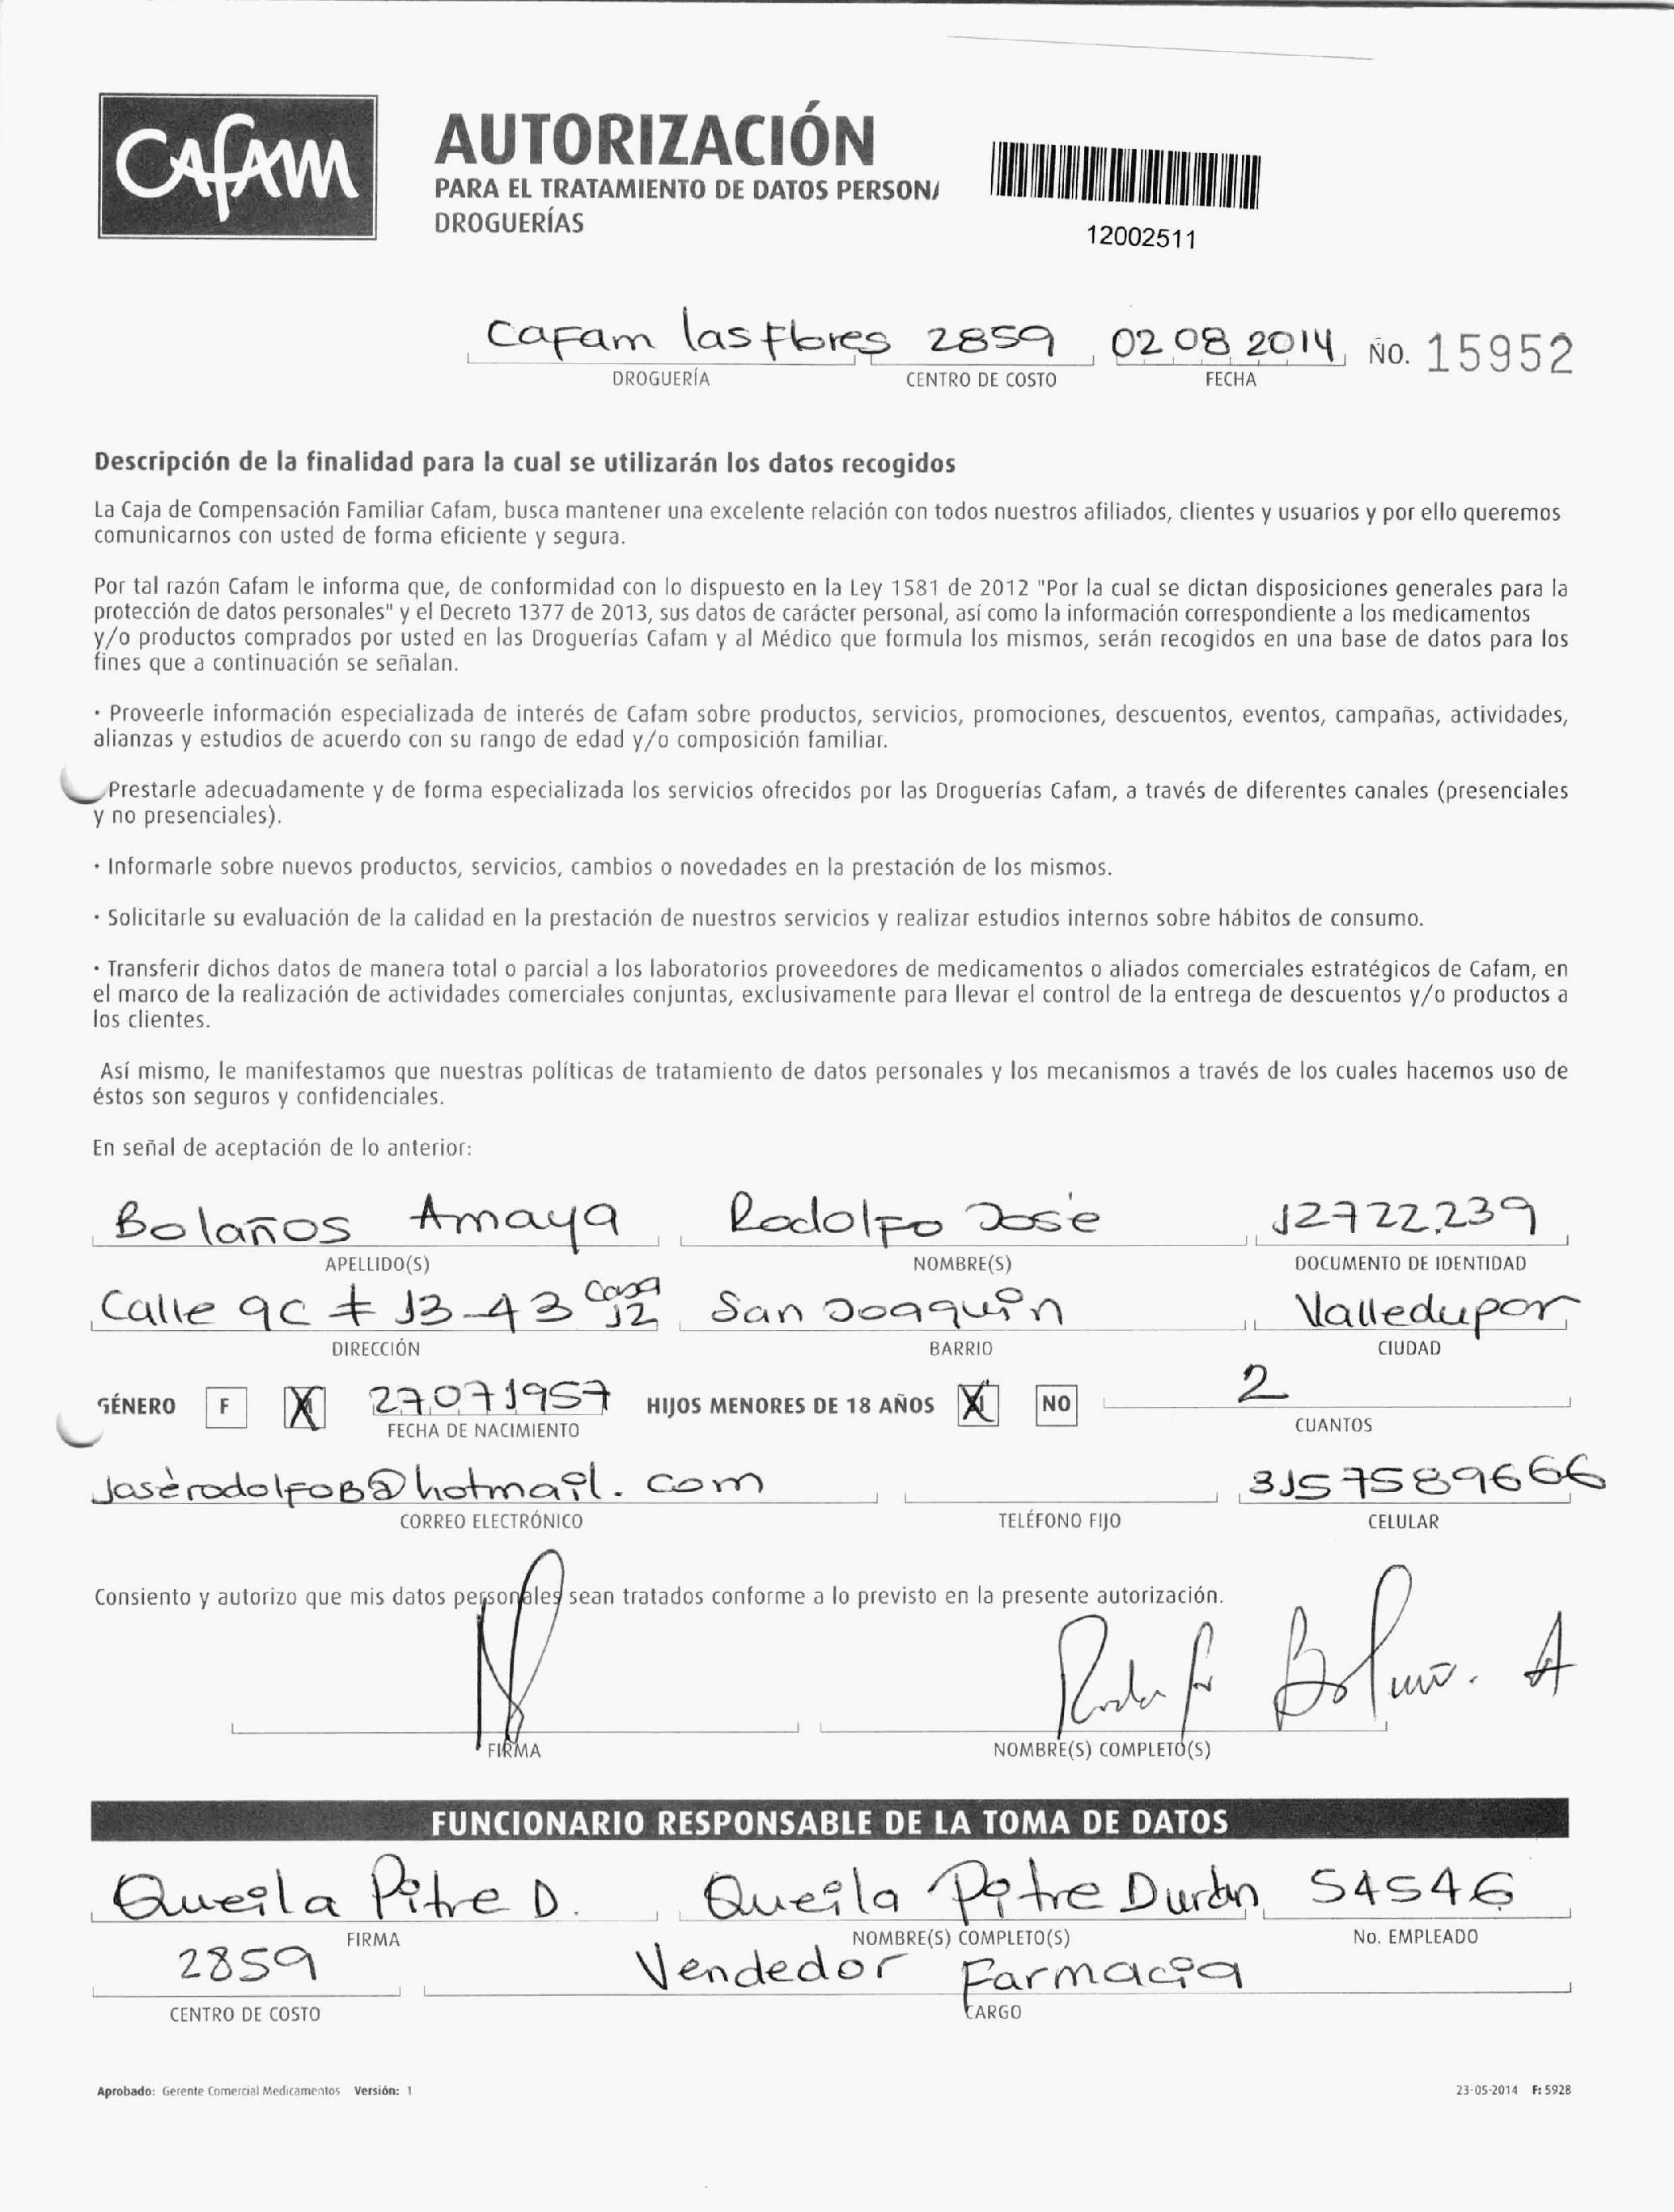 Cafam
AUTORIZACIÓN
PARA EL TRATAMIENTO DE DATOS PERSONA
DROGUERÍAS
12002511
Cafam las flores 2859 02 08 2014 No. 15952
DROGUERÍA CENTRO DE COSTO FECHA
Descripción de la finalidad para la cual se utilizarán los datos recogidos
La Caja de Compensación Familiar Cafam, busca mantener una excelente relación con todos nuestros afiliados, clientes y usuarios y por ello queremos
comunicarnos con usted de forma eficiente y segura.
Por tal razón Cafam le informa que, de conformidad con lo dispuesto en la Ley 1581 de 2012 "Por la cual se dictan disposiciones generales para la
protección de datos personales" y el Decreto 1377 de 2013, sus datos de carácter personal, así como la información correspondiente a los medicamentos
y/o productos comprados por usted en las Droguerías Cafam y al Médico que formula los mismos, serán recogidos en una base de datos para los
fines que a continuación se señalan.
· Proveerle información especializada de interés de Cafam sobre productos, servicios, promociones, descuentos, eventos, campañas, actividades,
alianzas y estudios de acuerdo con su rango de edad y/o composición familiar.
Prestarle adecuadamente y de forma especializada los servicios ofrecidos por las Droguerías Cafam, a través de diferentes canales (presenciales
y no presenciales).
· Informarle sobre nuevos productos, servicios, cambios o novedades en la prestación de los mismos.
· Solicitarle su evaluación de la calidad en la prestación de nuestros servicios y realizar estudios internos sobre hábitos de consumo.
· Transferir dichos datos de manera total o parcial a los laboratorios proveedores de medicamentos o aliados comerciales estratégicos de Cafam, en
el marco de la realización de actividades comerciales conjuntas, exclusivamente para llevar el control de la entrega de descuentos y/o productos a
los clientes.
Así mismo, le manifestamos que nuestras políticas de tratamiento de datos personales y los mecanismos a través de los cuales hacemos uso de
éstos son seguros y confidenciales.
En señal de aceptación de lo anterior:
Bolaños Amaya Rodolfo José 12722.239
APELLIDO(S) NOMBRE(S) DOCUMENTO DE IDENTIDAD
Calle 9C # 13-43 Casa 12 San Joaquin Valledupar
DIRECCIÓN BARRIO CIUDAD
GÉNERO F X 27071957 HIJOS MENORES DE 18 AÑOS X NO 2
FECHA DE NACIMIENTO CUANTOS
JosèrodolfoB@hotmail.com 3157589666
CORREO ELECTRÓNICO TELÉFONO FIJO CELULAR
Consiento y autorizo que mis datos personales sean tratados conforme a lo previsto en la presente autorización.
A
FIRMA NOMBRE(S) COMPLETO(S)
FUNCIONARIO RESPONSABLE DE LA TOMA DE DATOS
Queila Pitre D. Queila Pitre Durán 54546
FIRMA NOMBRE(S) COMPLETO(S) No. EMPLEADO
2859 Vendedor Farmacia
CENTRO DE COSTO CARGO
Aprobado: Gerente Comercial Medicamentos Versión: 1 23-05-2014 F: 5928